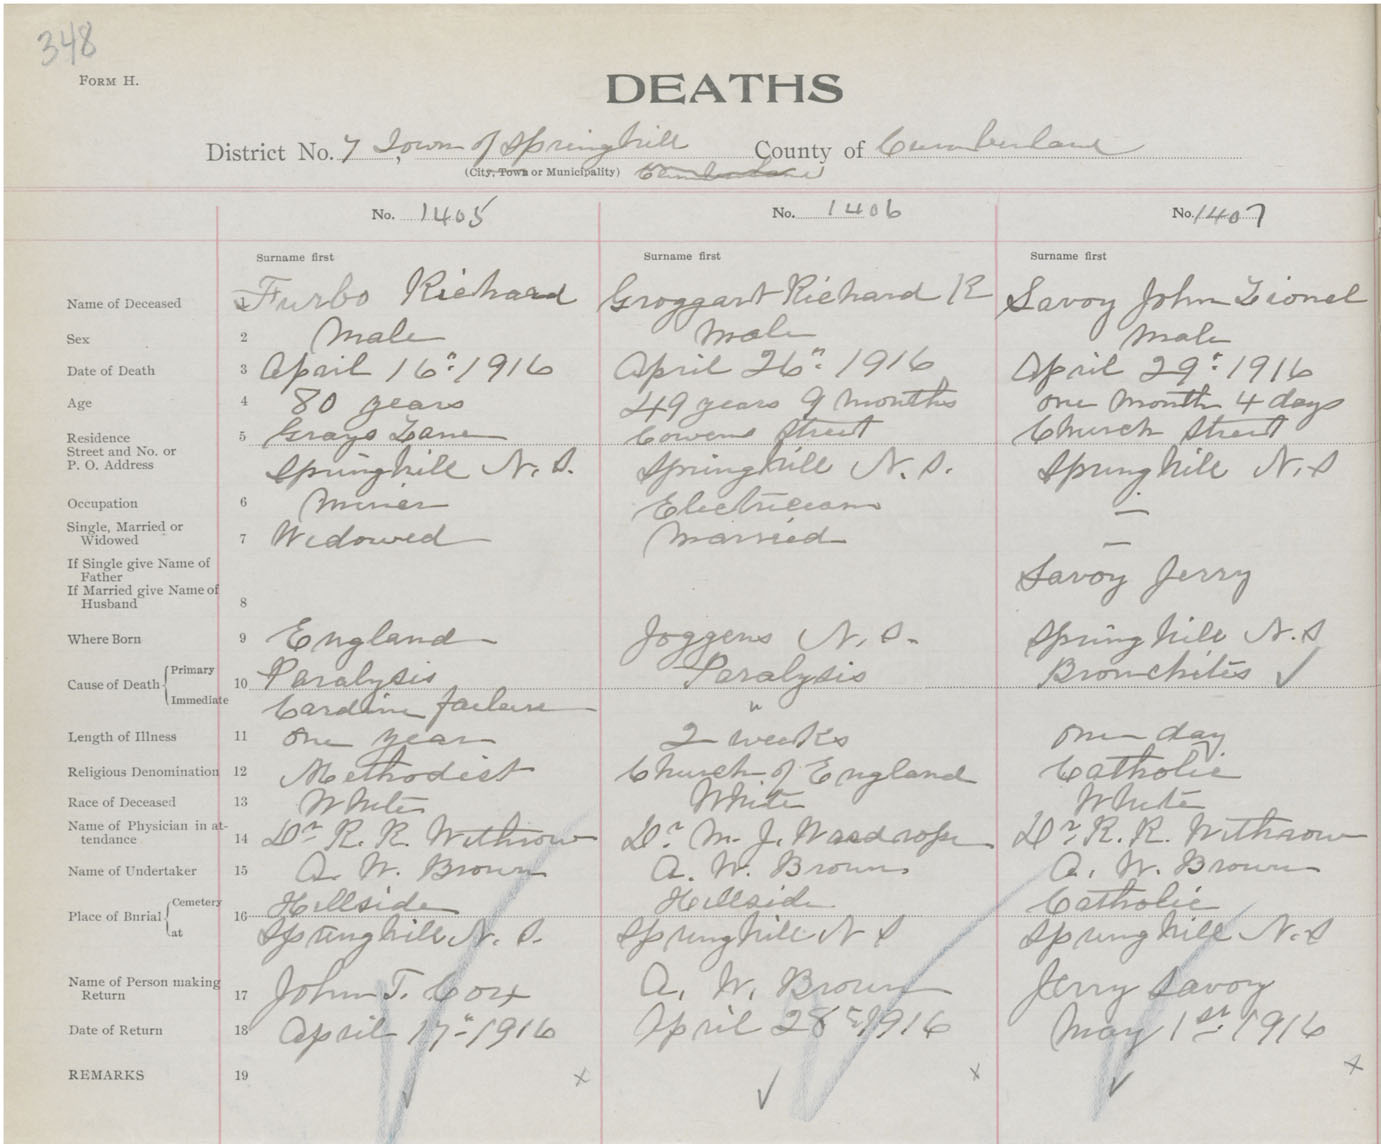 348
FORM H.
DEATHS
District No. 7 Town of Springhill County of Cumberland
(City, Town or Municipality) Cumberland
No. 1405 No. 1406 No. 1407
Surname first Surname first Surname first
Name of Deceased 1 Furbo Richard Groggart Richard R Savoy John Lionel
Sex 2 Male Male Male
Date of Death 3 April 16" 1916 April 26" 1916 April 29" 1916
Age 4 80 years 49 years 9 months one month 4 days
Residence 5 Grays Lane Cowens Street Church Street
Street and No. or
P. O. Address Springhill N. S. Springhill N. S. Springhill N. S
Occupation 6 Miner Electrician —
Single, Married or
Widowed 7 Widowed Married —
If Single give Name of
Father Savoy Jerry
If Married give Name of
Husband 8
Where Born 9 England Joggens N. S. Springhill N. S
Cause of Death Primary 10 Paralysis Paralysis Bronchites ✓
Immediate Cardiac failure "
Length of Illness 11 one year 2 weeks one day
Religious Denomination 12 Methodist Church of England Catholic
Race of Deceased 13 White White White
Name of Physician in at-
tendance 14 Dr R. R. Withrow Dr. M. J. Wardrope Dr R. R. Withrow
Name of Undertaker 15 A. W. Brown A. W. Brown A. W. Brown
Place of Burial Cemetery 16 Hillside Hillside Catholic
at Springhill N. S. Springhill N S Springhill N. S
Name of Person making
Return 17 John T. Cox A. W. Brown Jerry Savoy
Date of Return 18 April 17" 1916 April 28" 1916 May 1st 1916
REMARKS 19 ✓ x ✓ x ✓ x